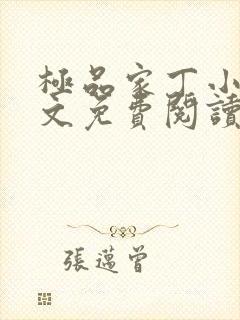 極品家丁小
文免費閱讀
張邁曾